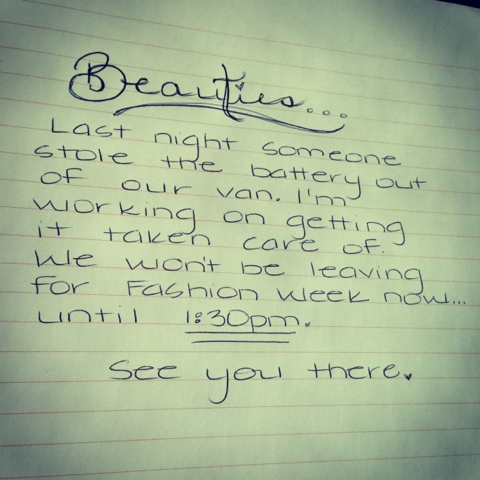 Beauties...
Last night someone
stole the battery out
of our van. I'm
working on getting
it taken care of.
We won't be leaving
for Fashion week now...
until 1:30pm.
See you there.